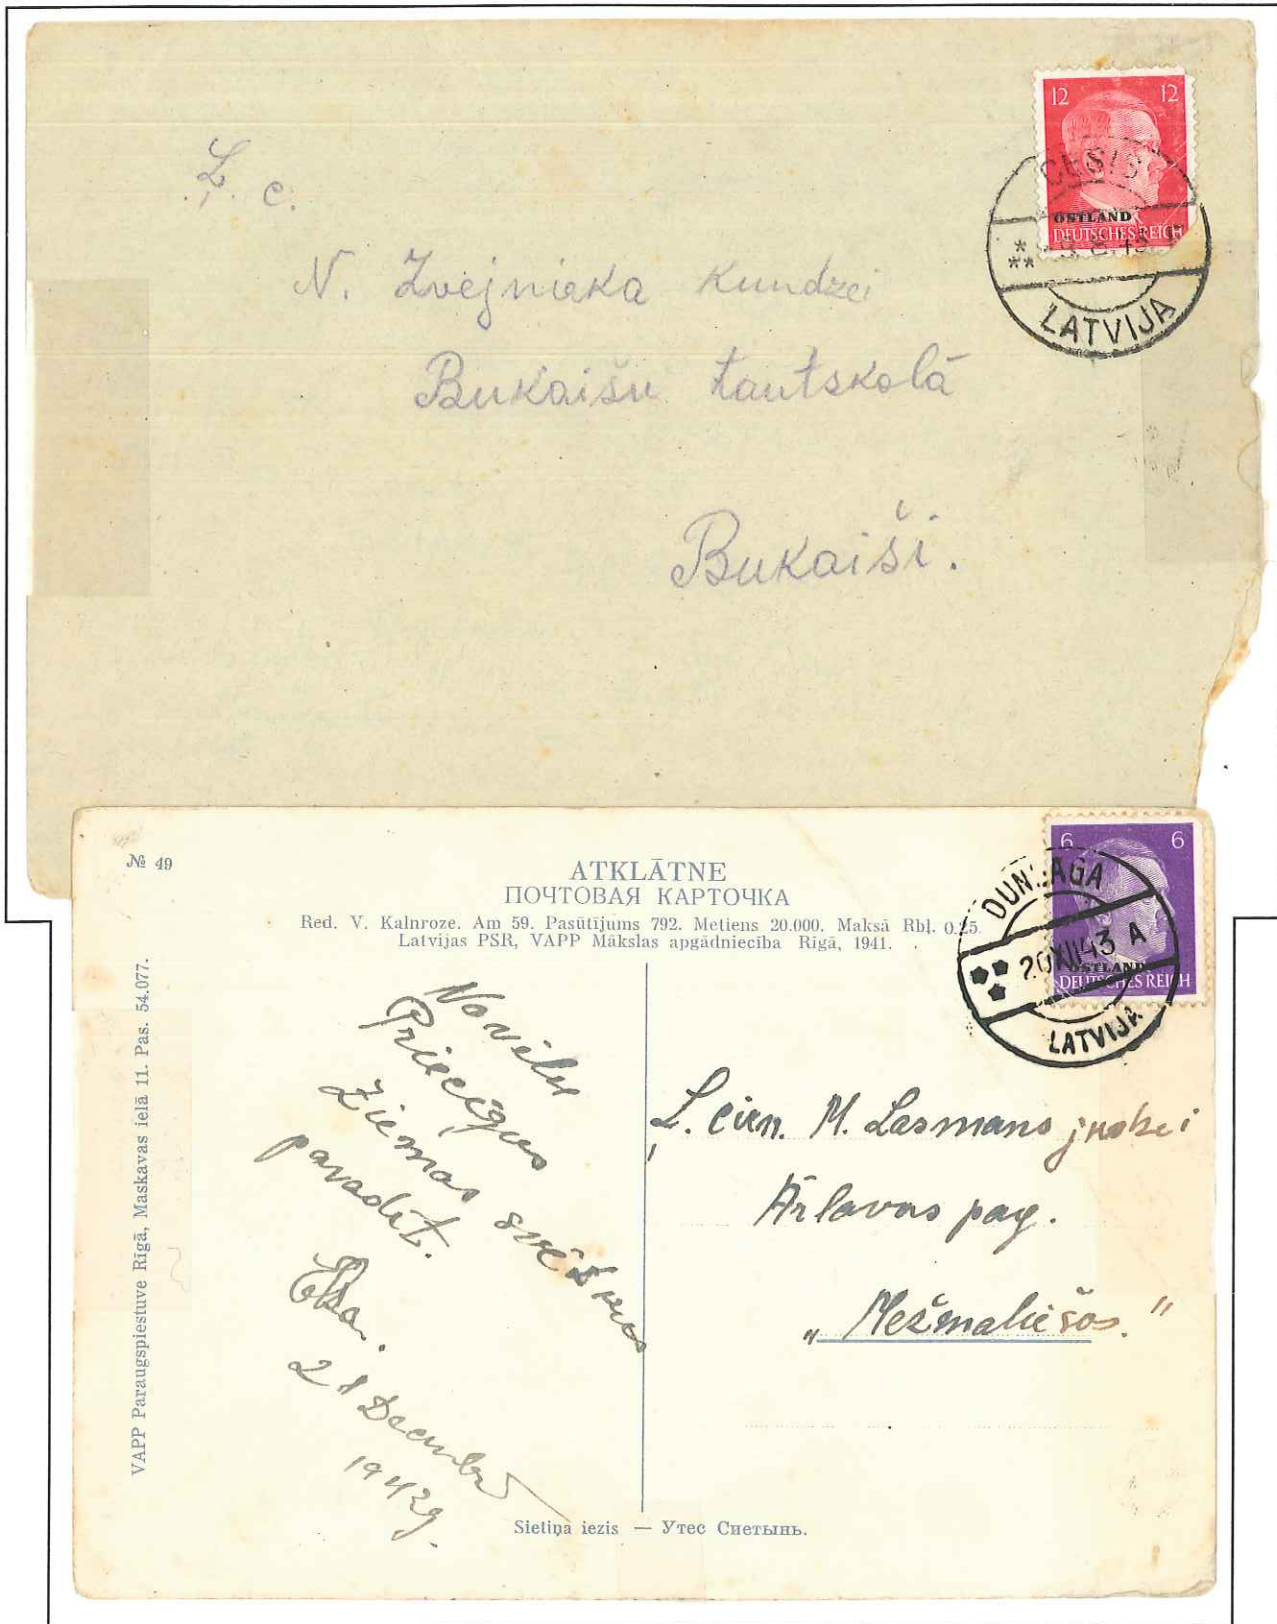 12 12
CĒSIS
OSTLAND
DEUTSCHES REICH
LATVIJA
Ļ. c.
N. Zvejnieka Kundzei
Bukaišu tautskolā
Bukaiši.
№ 49
ATKLĀTNE
ПОЧТОВАЯ КАРТОЧКА
Red. V. Kalnroze. Am 59. Pasūtījums 792. Metiens 20.000. Maksā Rbļ. 0.25.
Latvijas PSR, VAPP Mākslas apgādniecība Rīgā, 1941.
6 6
DUNDAGA
20 XII 43 A
OSTLAND
DEUTSCHES REICH
LATVIJA
VAPP Paraugspiestuve Rīgā, Maskavas ielā 11. Pas. 54.077.
Novēlu
Priecīgus
Ziemas svētkus
pavadīt.
21 Decembrī
1943g.
Ļ. cien. M. Lasmans
Ārlavas pag.
„Mežmaliešos."
Sietiņa iezis — Утес Сиетынь.